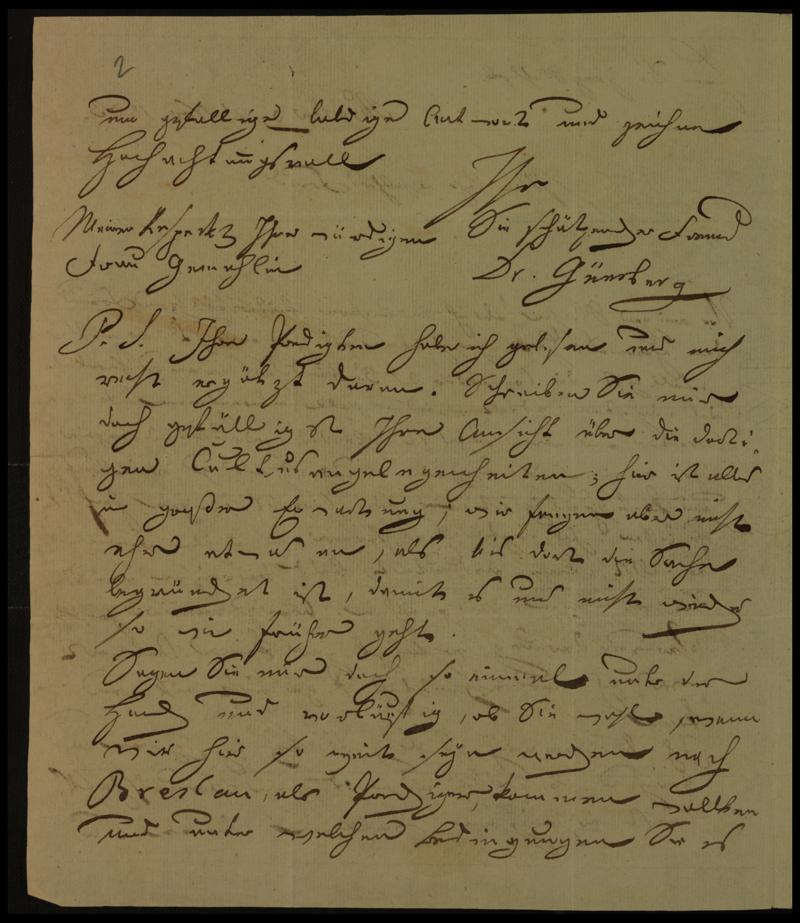 2
um gefällige baldige Antwort und zeichne
Hochachtungsvoll
Ihr
Meinen Respekt Ihrer würdigen Sie schätzender Freund
Frau Gemahlin Dr. Günsberg
P. S. Ihre Predigten habe ich gelesen und mich
recht ergötzt daran. Schreiben Sie mir
doch gefälligst Ihre Ansicht über die dorti-
gen Cultusangelegenheiten; hier ist alles
in großer Erwartung; wir fangen aber nicht
eher etwas an, als bis dort die Sache
begründet ist, damit es uns nicht wieder
so wie früher geht.
Sagen Sie mir doch so einmal unter der
Hand und vorläufig, ob Sie wohl, wenn
wir hier so weit seyn werden nach
Breslau, als Prediger, kommen wollten
und unter welchen Bedingungen Sie es